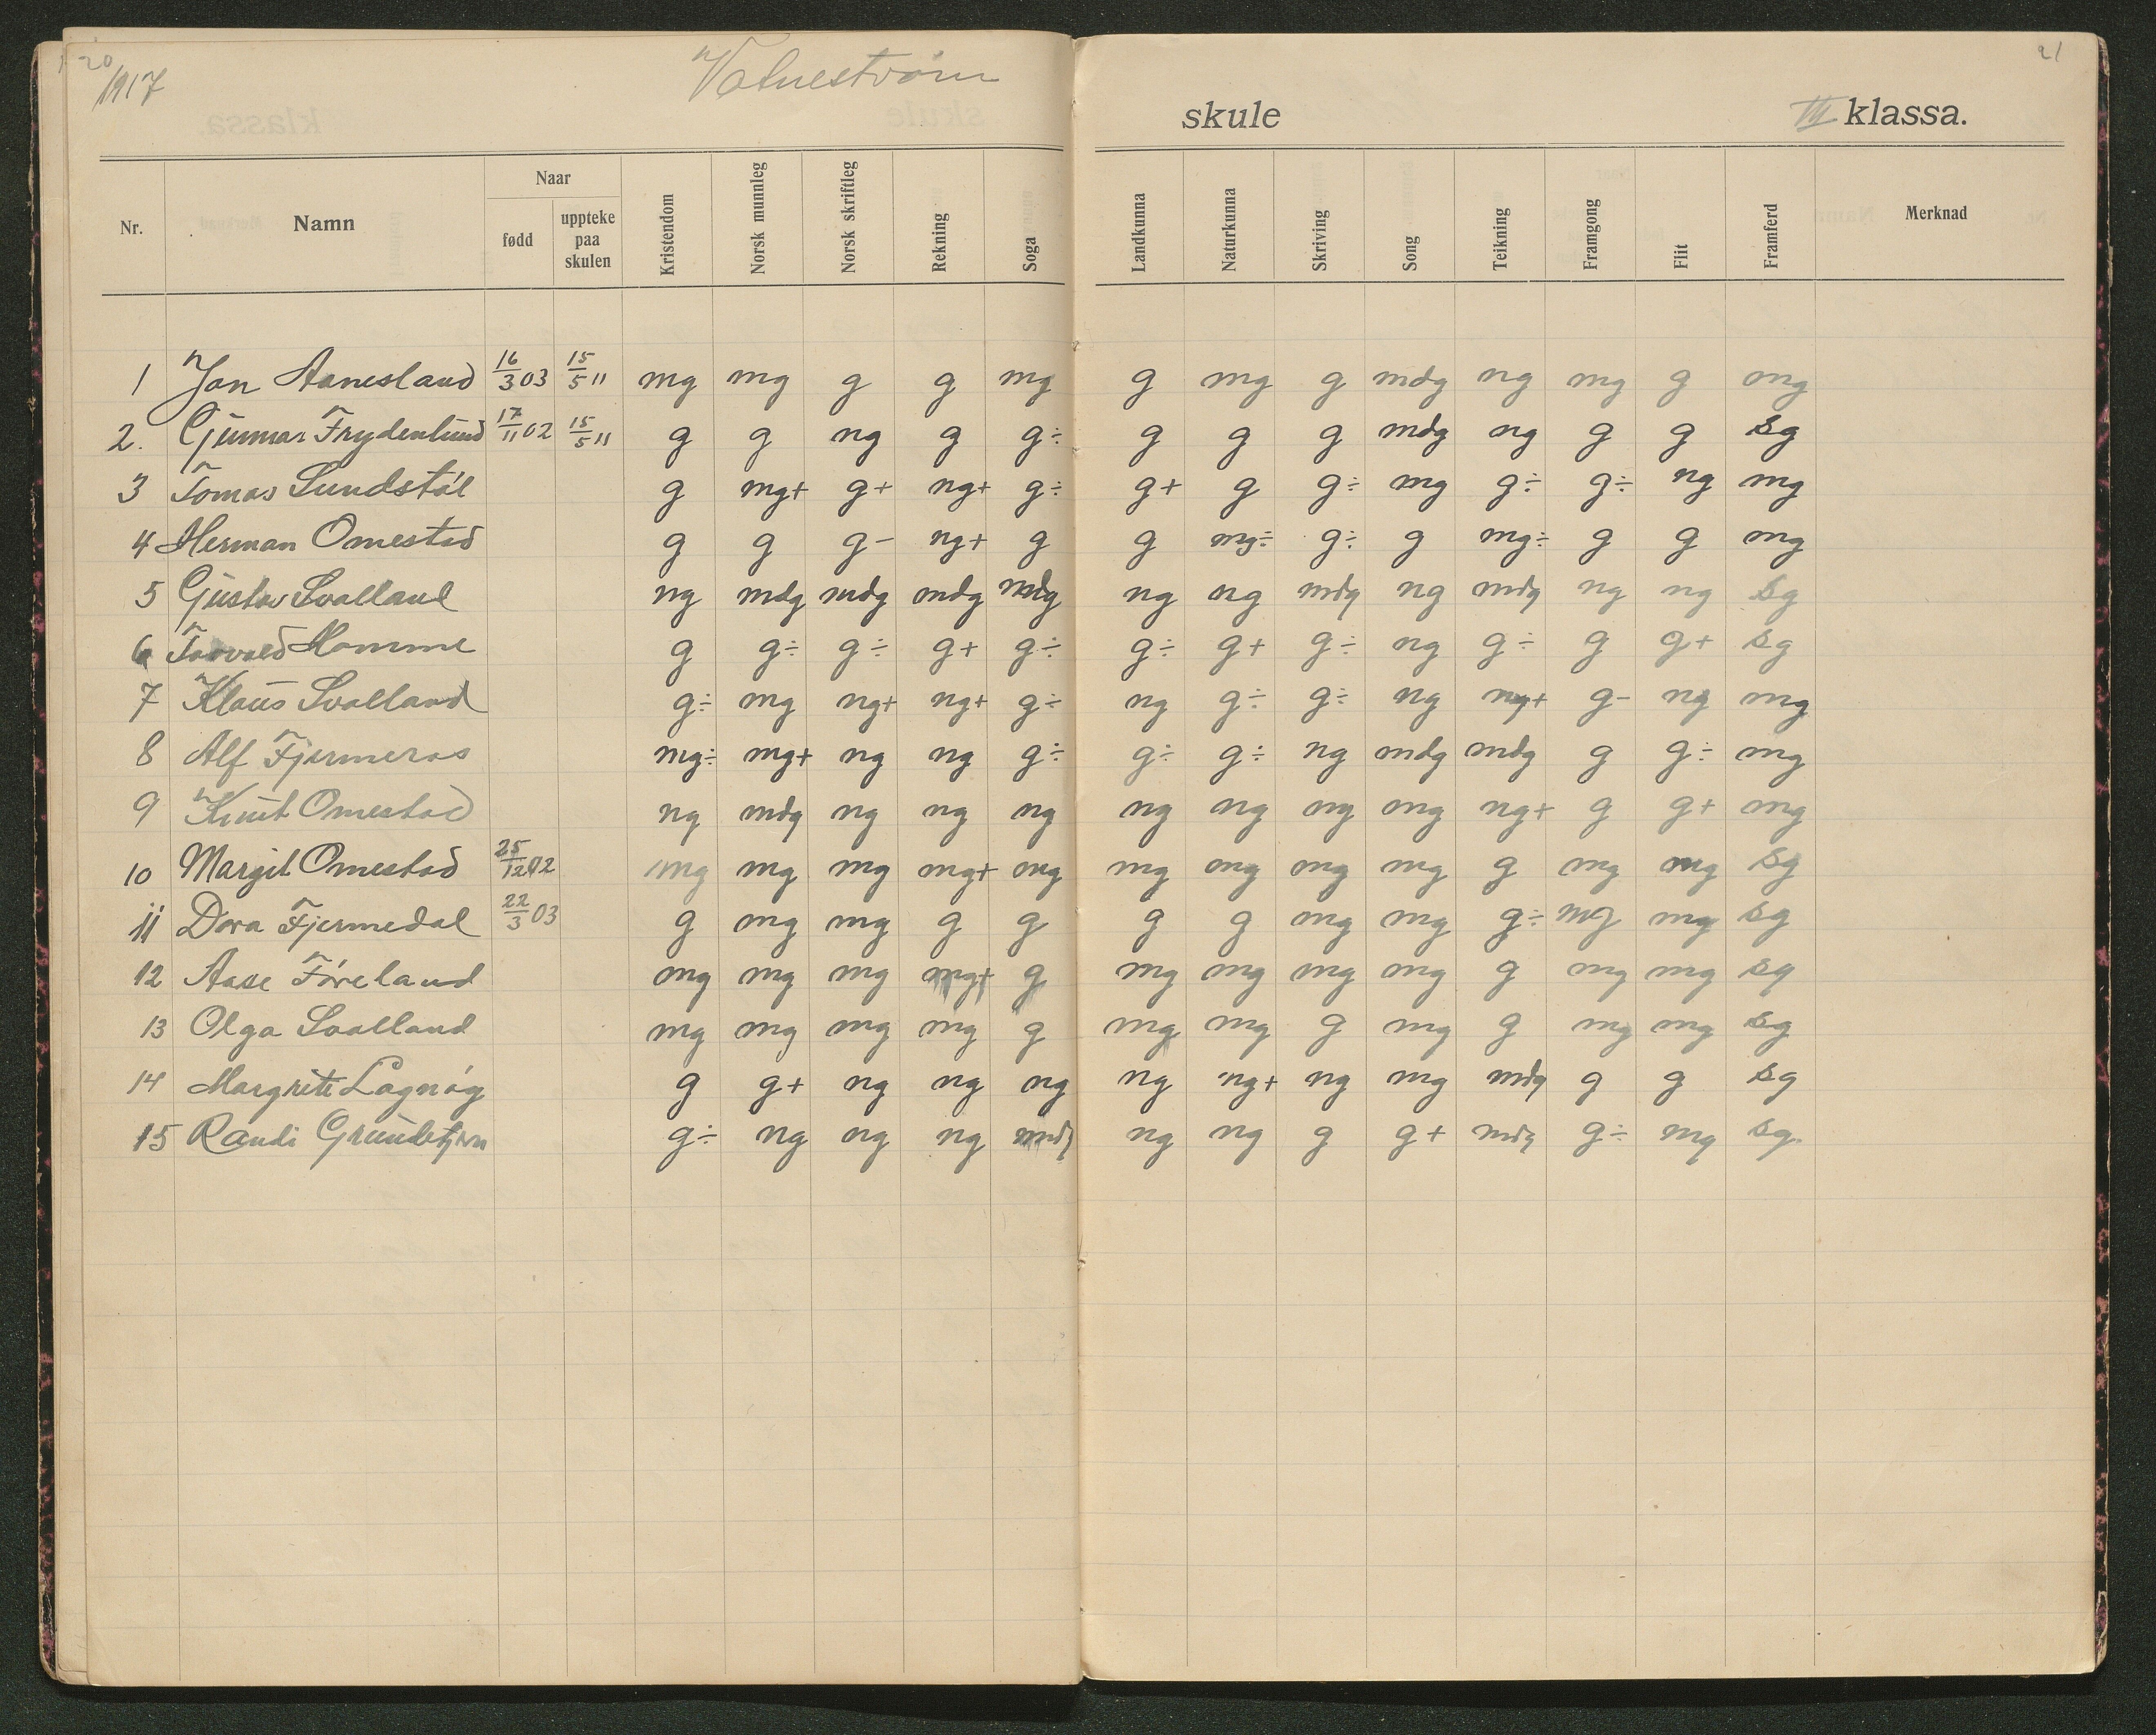 20 21
1917 Vatneström skule III klassa.
Nr. Namn Naar fødd uppteke paa skulen Kristendom Norsk munnleg Norsk skriftleg Rekning Soga Landkunna Naturkunna Skriving Song Teikning Framgong Flit Framferd Merknad
1 Jon Aanesland 16/3 03 15/5 11 mg mg g g mg g mg g mdg ng mg g mg
2. Gunnar Frydenlund 17/11 02 15/5 11 g g ng g g÷ g g g mdg ng g g sg
3 Tomas Sundstøl g mg+ g+ ng+ g÷ g+ g g÷ mg g÷ g÷ ng mg
4 Herman Omestad g g g- ng+ g g mg÷ g÷ g mg÷ g g mg
5 Gustav Svalland ng mdg mdg mdg mdg ng ng mdg ng mdg ng ng sg
6 Torvald Homme g g÷ g÷ g+ g÷ g÷ g+ g÷ ng g÷ g g+ sg
7 Klaus Svalland g÷ mg ng+ ng+ g÷ ng g÷ g÷ ng ng+ g- ng mg
8 Alf Fjermeros mg÷ mg+ ng ng g÷ g÷ g÷ ng mdg mdg g g÷ mg
9 Knut Omestad ng mdg ng ng ng ng ng ng mg ng+ g g+ mg
10 Margit Omestad 25/12 02 mg mg mg mg+ mg mg mg mg mg g mg mg sg
11 Dora Fjermedal 22/3 03 g mg mg g g g g mg mg g÷ mg mg sg
12 Aase Føreland mg mg mg mg+ g mg mg mg mg g mg mg sg
13 Olga Svalland mg mg mg mg g mg mg g mg g mg mg sg
14 Margrete Lognøg g g+ ng ng ng ng ng+ ng mg mdg g g sg
15 Randi Grundetjern g÷ ng ng ng mdg ng ng g g+ mdg g÷ mg sg.